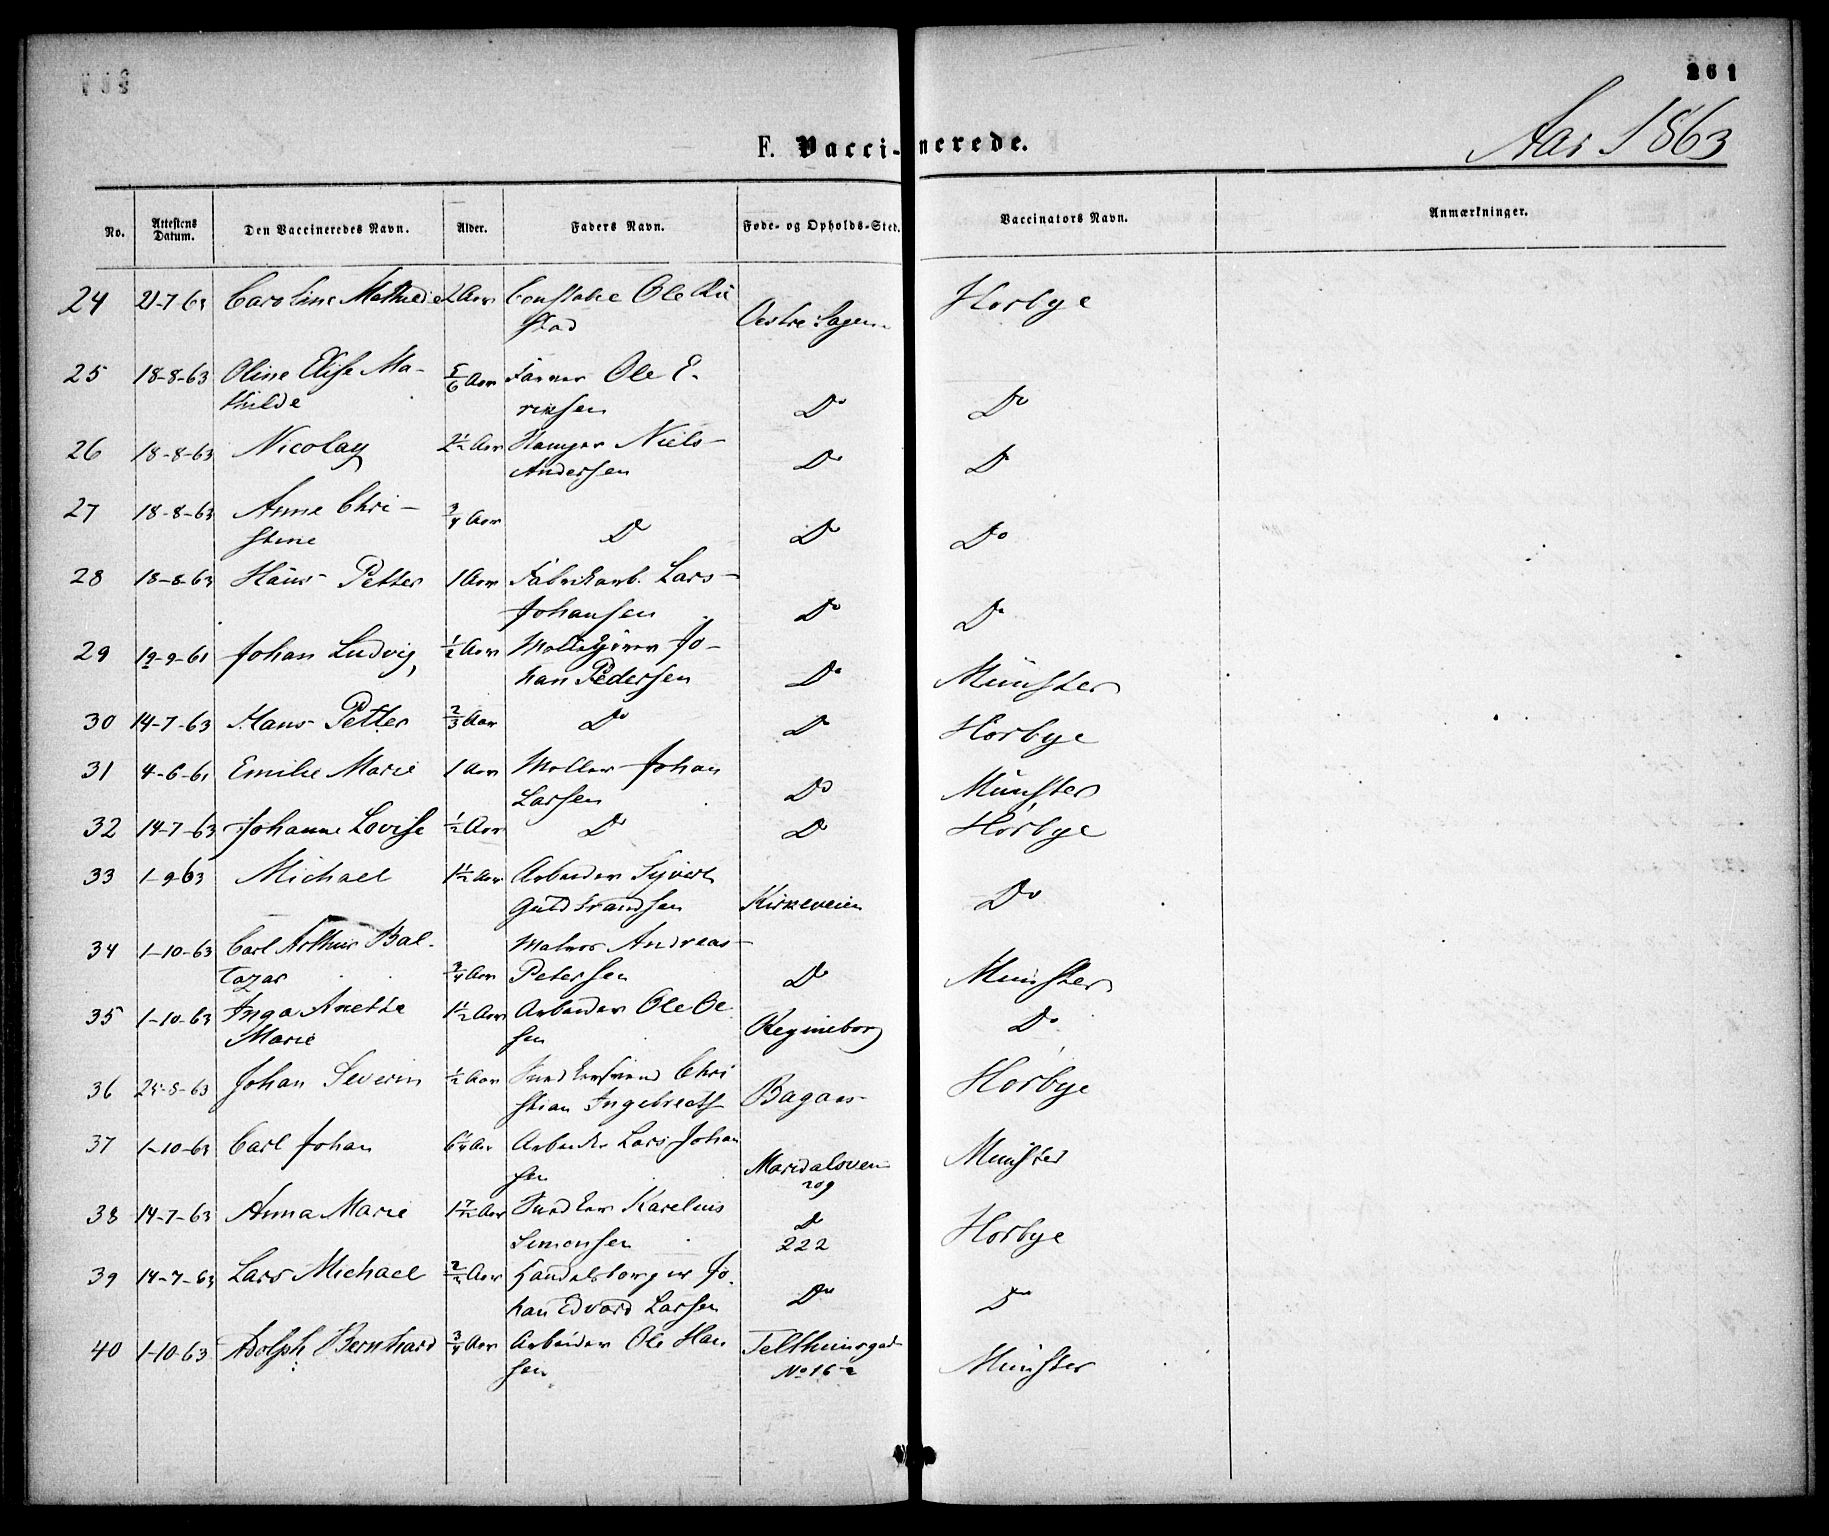 261
Aar 1863
F. Vaccinerede.
No. Attestens Datum. Den Vaccineredes Navn. Alder. Faders Navn. Føde- og Opholds-Sted. Vaccinators Navn. Anmærkninger.
24 21-7-63 Caroline Mathilde 2 Aar Constabel Ole Ru
stad Oestre Hagen Horbye
25 18-8-63 Oline Elise Ma- 5/6 Aar Farver Ole E-
thilde riksen Do Do
26 18-8-63 Nicolay 2 1/2 Aar Niels
Andersen Do D
27 18-8-63 Anne Chri- 3/4 Aar
stine D Do Do
28 18-8-63 Hans Petter 1 Aar Fabrikarb. Lars
Johansen Do Do
29 19-9-61 Johan Ludvig 1/2 Aar Møllebygger Jo-
han Pedersen Do Münster
30 14-7-63 Hans Petter 2/3 Aar Do Do Horbye
31 4-6-61 Emilie Marie 1 Aar Møller Johan
Larsen Do Münster
32 14-7-63 Johanne Lovise 1/2 Aar Do Do Horbye
33 1-9-63 Michael 1 1/2 Aar Arbeider Syvert
Guldbrandsen Kirkeveien Do
34 1-10-63 Carl Arthur Bal- Maler Andreas
tazar 3/4 Aar Petersen Do Münster
35 1-10-63 Inga Anette 1 1/2 Aar Arbeider Ole Ol
Marie sen Regineborg Do
36 25-8-63 Johan Severin 1/2 Aar Chri
stian Ingebrects Bagaas Horbye
37 1-10-63 Carl Johan 6 1/4 Aar Arbeider Lars Johan
sen Maridalsveien
209 Münster
38 14-7-63 Anna Marie 1 7/12 Aar Snedker Karelius
Simensen Do
222 Horbye
39 14-7-63 Lars Michael Aar Handelsborger Jo-
han Edvard Larsen Do Do
40 1-10-63 Adolph Bernhard 3/4 Aar Arbeider Ole Han
sen Telthuusgad
No 16 a Münster